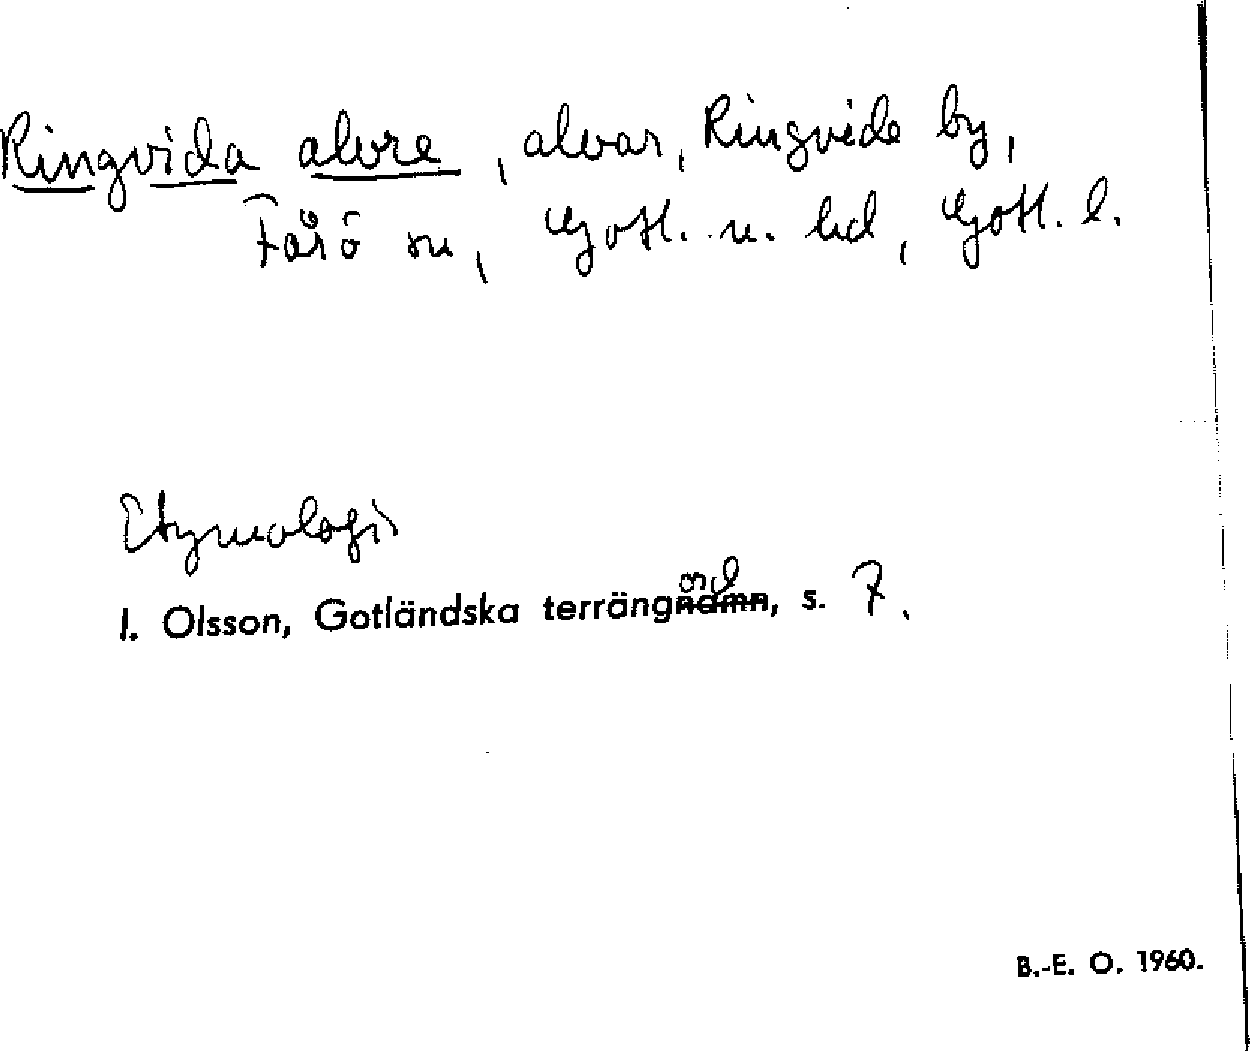 Ringvida alvre, alvar, Ringvide by,
Fårö sn, Gotl. n. hd, Gotl. l.
Etymologi
I. Olsson, Gotländska terrängord, s. 7.
B.-E. O. 1960.